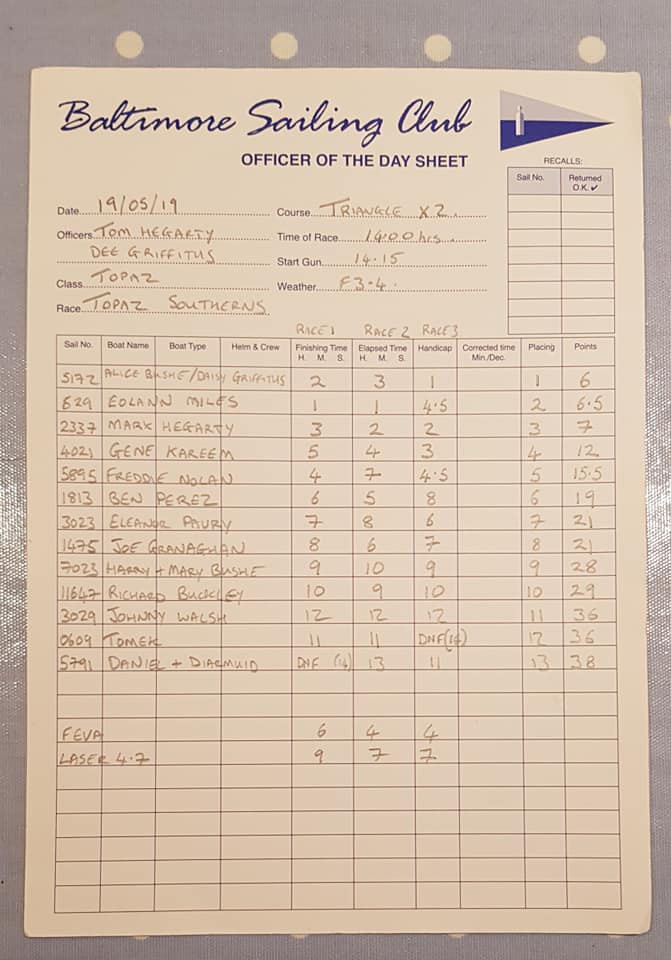 Baltimore Sailing Club
OFFICER OF THE DAY SHEET
RECALLS:
Sail No. Returned O.K. ✓
Date 19/05/19 Course TRIANGLE X 2
Officers TOM HEGARTY Time of Race 14:00 hrs
DEE GRIFFITHS Start Gun 14.15
Class TOPAZ Weather F3-4.
Race TOPAZ SOUTHERNS
RACE 1 RACE 2 RACE 3
Sail No. Boat Name Boat Type Helm & Crew Finishing Time H. M. S. Elapsed Time H. M. S. Handicap Corrected time Min./Dec. Placing Points
5172 ALICE BUSHE/DAISY GRIFFITHS 2 3 1 1 6
629 EOLANN MILES 1 1 4.5 2 6.5
2337 MARK HEGARTY 3 2 2 3 7
4021 GENE KAREEM 5 4 3 4 12
5895 FREDDIE NOLAN 4 7 4.5 5 15.5
1813 BEN PEREZ 6 5 8 6 19
3023 ELEANOR PAURY 7 8 6 7 21
1475 JOE GRANAGHAN 8 6 7 8 21
7023 HARRY + MARY BUSHE 9 10 9 9 28
11647 RICHARD BUCKLEY 10 9 10 10 29
3029 JOHNNY WALSH 12 12 12 11 36
0609 TOMEK 11 11 DNF(14) 12 36
5791 DANIEL + DIARMUID DNF (14) 13 11 13 38
FEVA 6 4 4
LASER 4.7 9 7 7